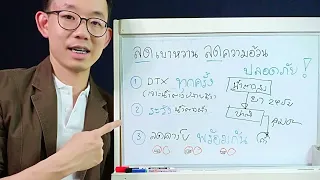 ลดเบาหวาน ลดความอ้วน
ปลอดภัย!
① DTX ทุกครั้ง
(เจาะน้ำตาลปลายนิ้ว)
② ระวัง น้ำตาลต่ำ
③ ลดคาร์บ พร้อมกัน
น้ำตาล
ยา